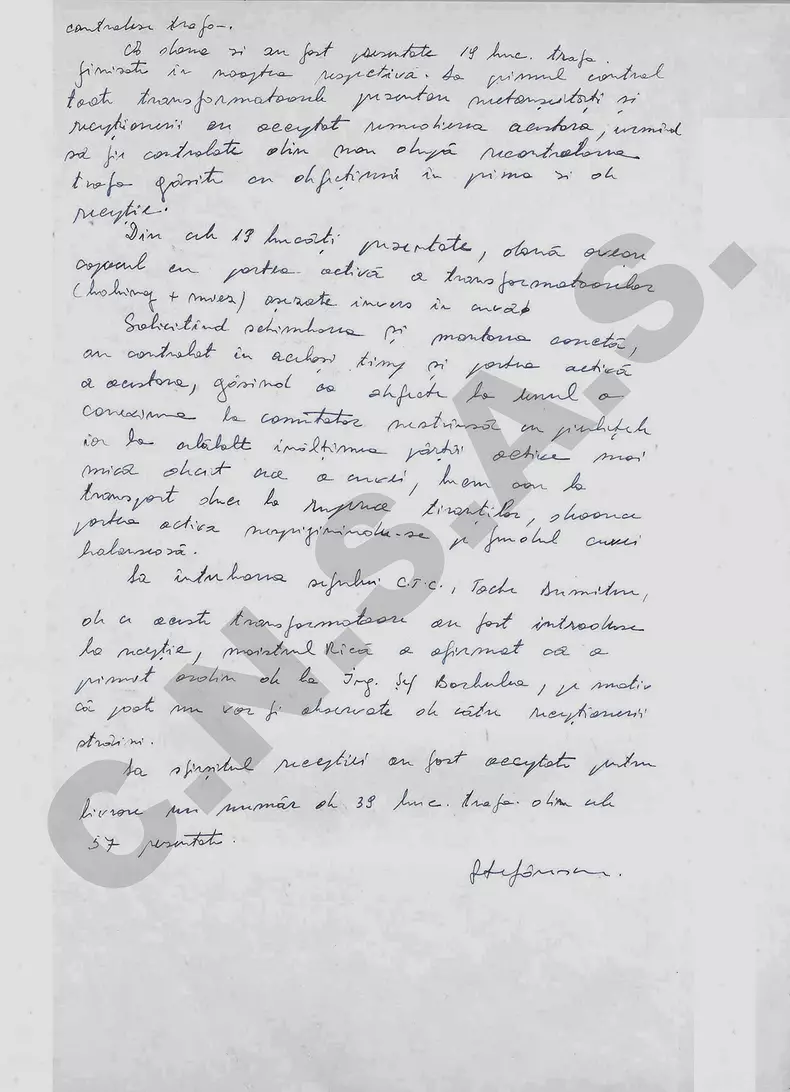 controleze trafo-.
A doua zi au fost prezentate 19 buc. trafo.
finisate în noaptea respectivă. La primul control
toate transformatoarele prezentau neetanșeități și
recepționerii au acceptat remedierea acestora, urmînd
să fie controlate din nou după recontrolarea
trafo găsite cu obiecțiuni în prima zi de
recepție.
Din cele 19 bucăți prezentate, două aveau
capacul cu partea activă a transformatoarelor
(bobinaj + miez) așezate invers în cuvă.
Solicitînd schimbarea și montarea corectă,
au controlat în același timp și partea activă
a acestora, găsind ca defecte la unul o
conexiune la comutator nestrînsă cu piulițele
iar la celălalt înălțimea părții active mai
mică decît cea a cuvei, lucru care la
transport duce la ruperea tiranților, deoarece
partea activă nesprijinindu-se pe fundul cuvei
balansează.
La întrebarea șefului C.T.C., Tache Dumitru,
de ce aceste transformatoare au fost introduse
la recepție, maistrul Rică a afirmat că a
primit ordin de la Ing. Șef, pe motiv
că poate nu vor fi observate de către recepționerii
străini.
La sfîrșitul recepției au fost acceptate pentru
livrare un număr de 39 buc. trafo. din cele
57 prezentate.
Ștefănescu.
C.N.S.A.S.